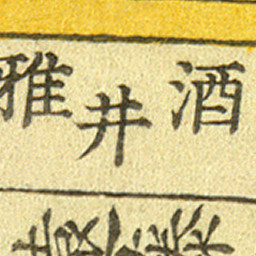 酒井雅